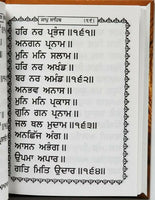 ਜਾਪੁ ਸਾਹਿਬ
ਹਰਿ ਨਰ ਪ੍ਰਭੇਜ ॥੧੬੧॥
ਅਨਗਨ ਪ੍ਰਨਾਮ ॥
ਮੁਨਿ ਮਨਿ ਸਲਾਮ ॥
ਹਰਿ ਨਰ ਅਖੰਡ ॥
ਬਰ ਨਰ ਅਮੰਡ ॥੧੬੨॥
ਅਨਭਵ ਅਨਾਸ ॥
ਮੁਨਿ ਮਨਿ ਪ੍ਰਕਾਸ ॥
ਗੁਨਿ ਗਨ ਪ੍ਰਨਾਮ ॥
ਜਲ ਥਲ ਮੁਦਾਮ ॥੧੬੩॥
ਅਨਛਿੱਜ ਅੰਗ ॥
ਆਸਨ ਅਭੰਗ ॥
ਉਪਮਾ ਅਪਾਰ ॥
ਗਤਿ ਮਿਤਿ ਉਦਾਰ ॥੧੬੪॥